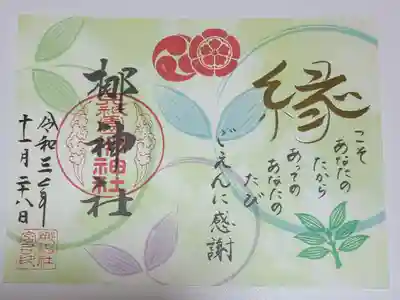 縁
こそ
あなたの
たから
あっての
あなたの
たび
ごえんに感謝
梛神社
令和三年
十一月二十八日